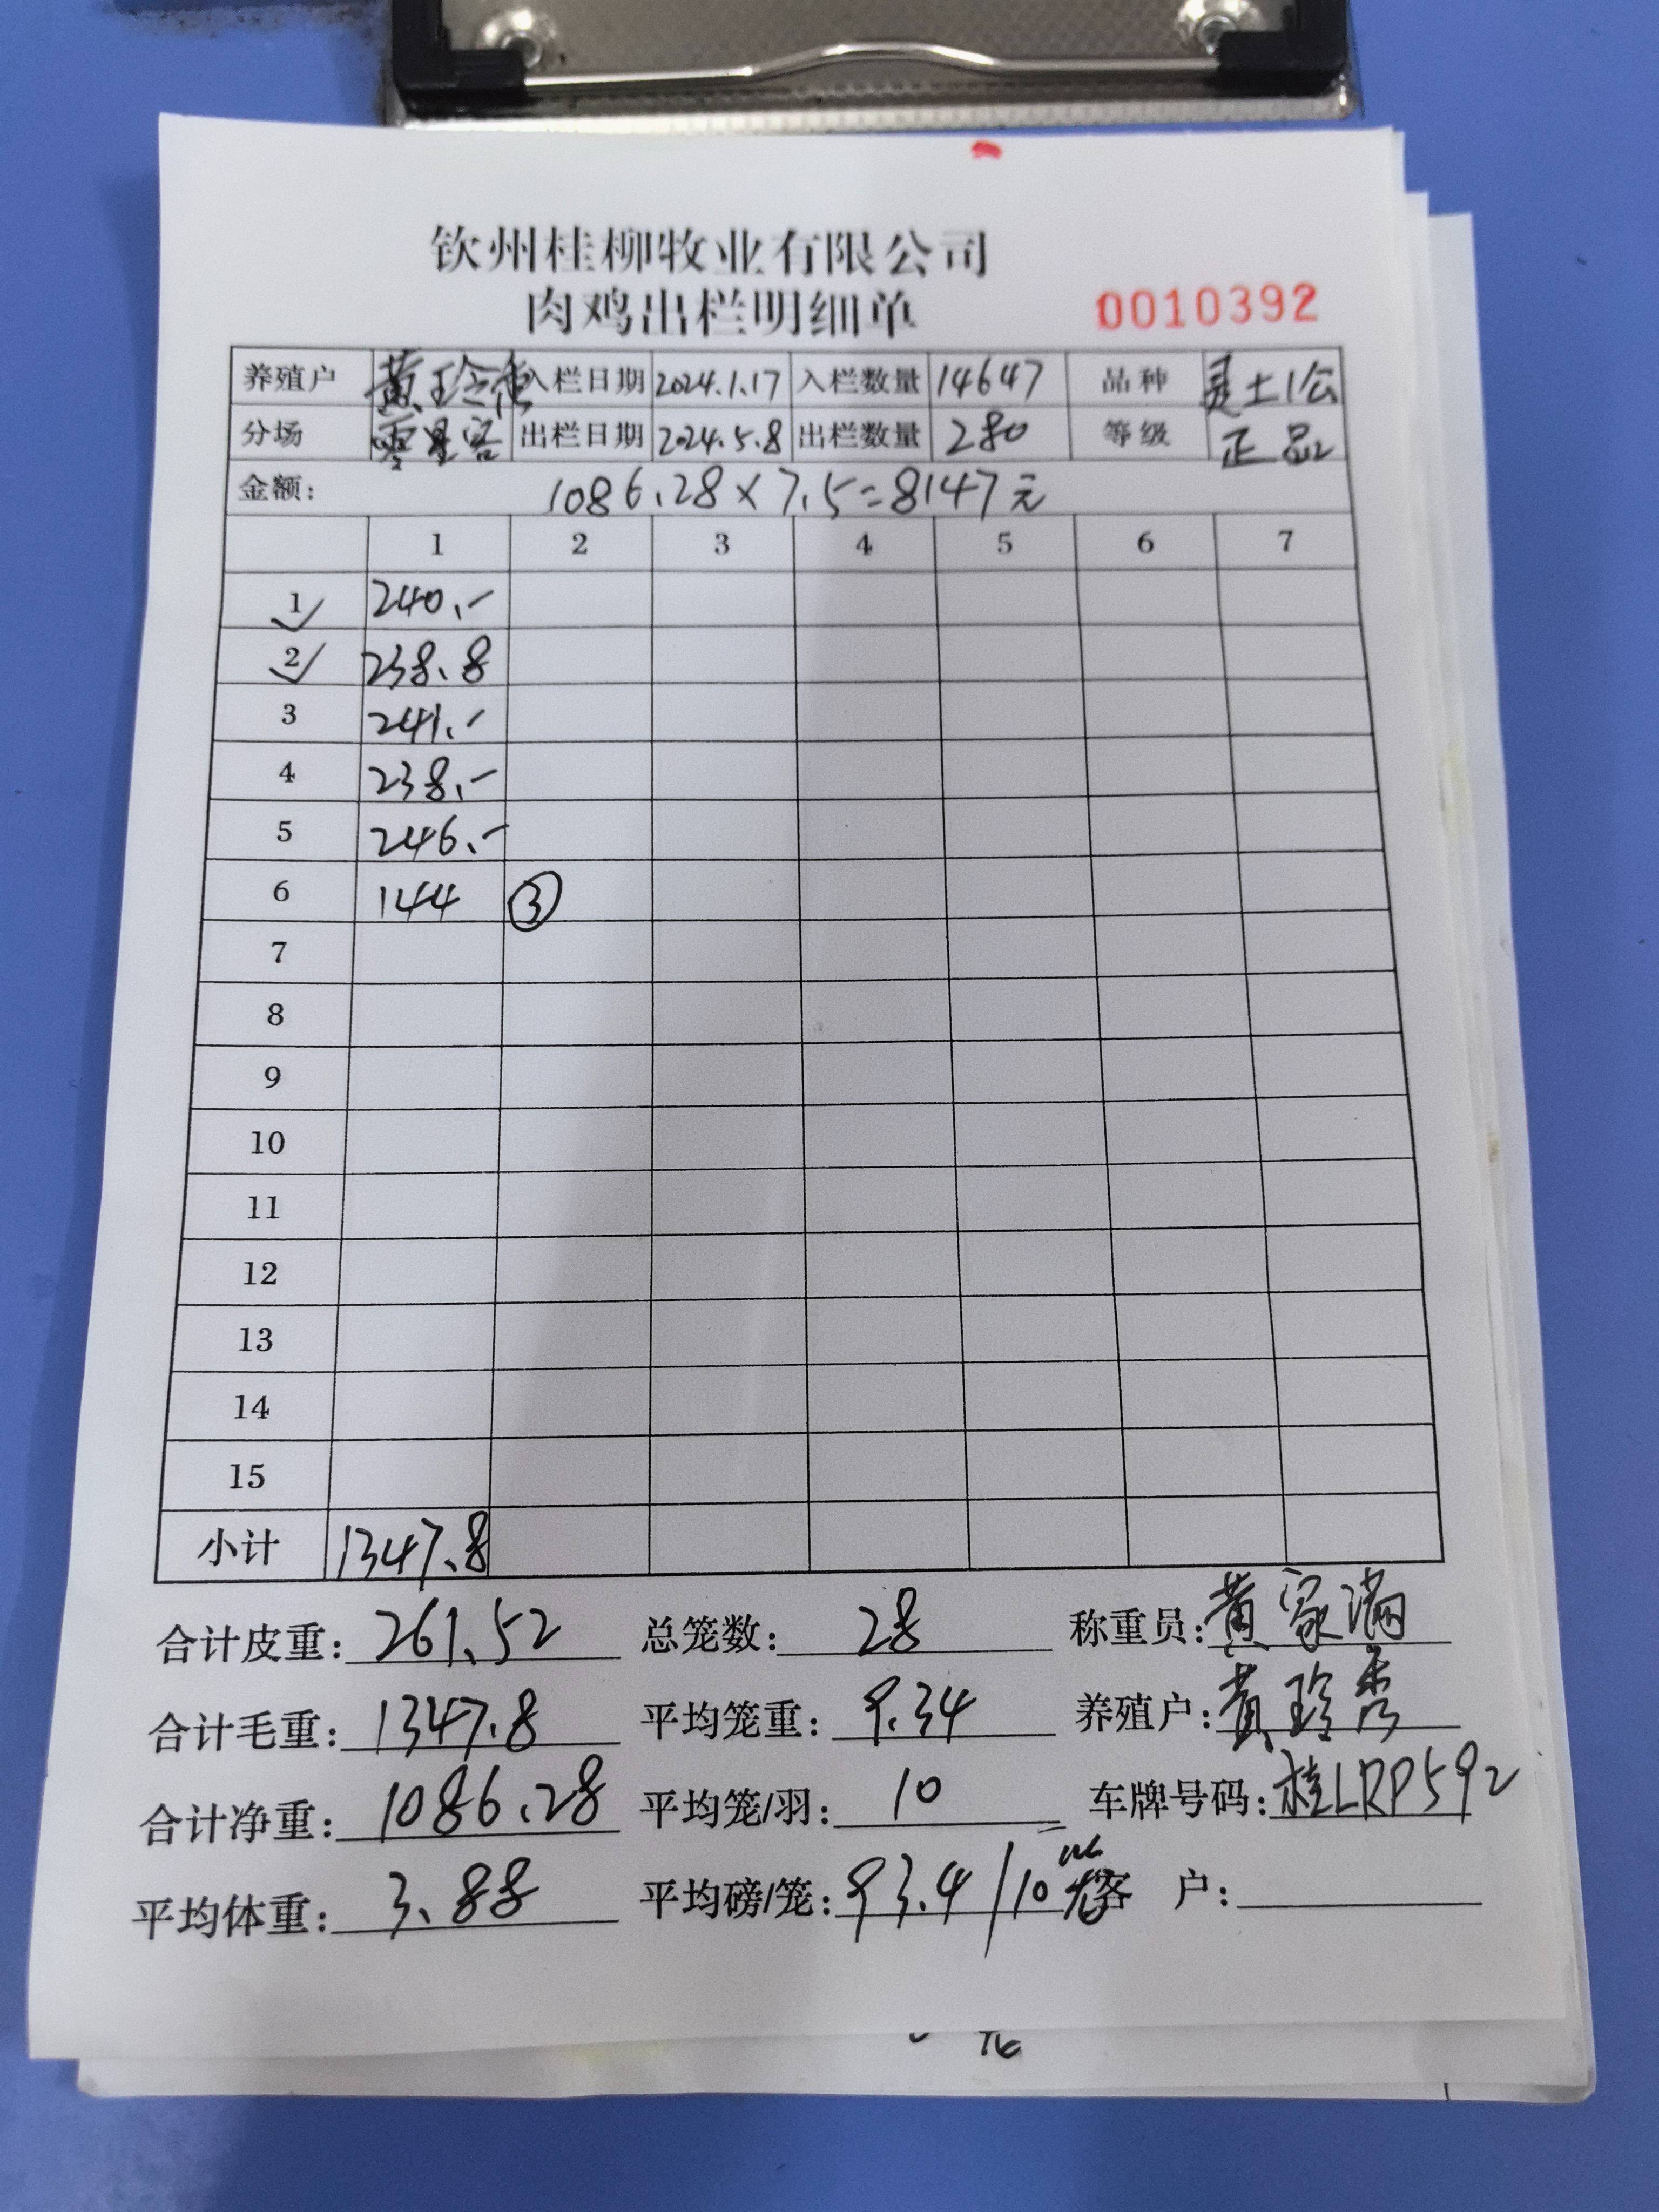 钦州桂柳牧业有限公司
肉鸡出栏明细单 0010392
养殖户 黄玲秀 入栏日期 2024.1.17 入栏数量 14647 品种 灵土1公
分场 零星客 出栏日期 2024.5.8 出栏数量 280 等级 正品
金额: 1086.28×7.5=8147元
1 2 3 4 5 6 7
1 240.-
2 238.8
3 241.-
4 238.-
5 246.-
6 144 ③
7
8
9
10
11
12
13
14
15
小计 1347.8
合计皮重: 261.52 总笼数: 28 称重员: 黄家满
合计毛重: 1347.8 平均笼重: 9.34 养殖户: 黄玲秀
合计净重: 1086.28 平均笼/羽: 10 车牌号码: 桂LRP592
平均体重: 3.88 平均磅/笼: 93.4/10笼 客户: